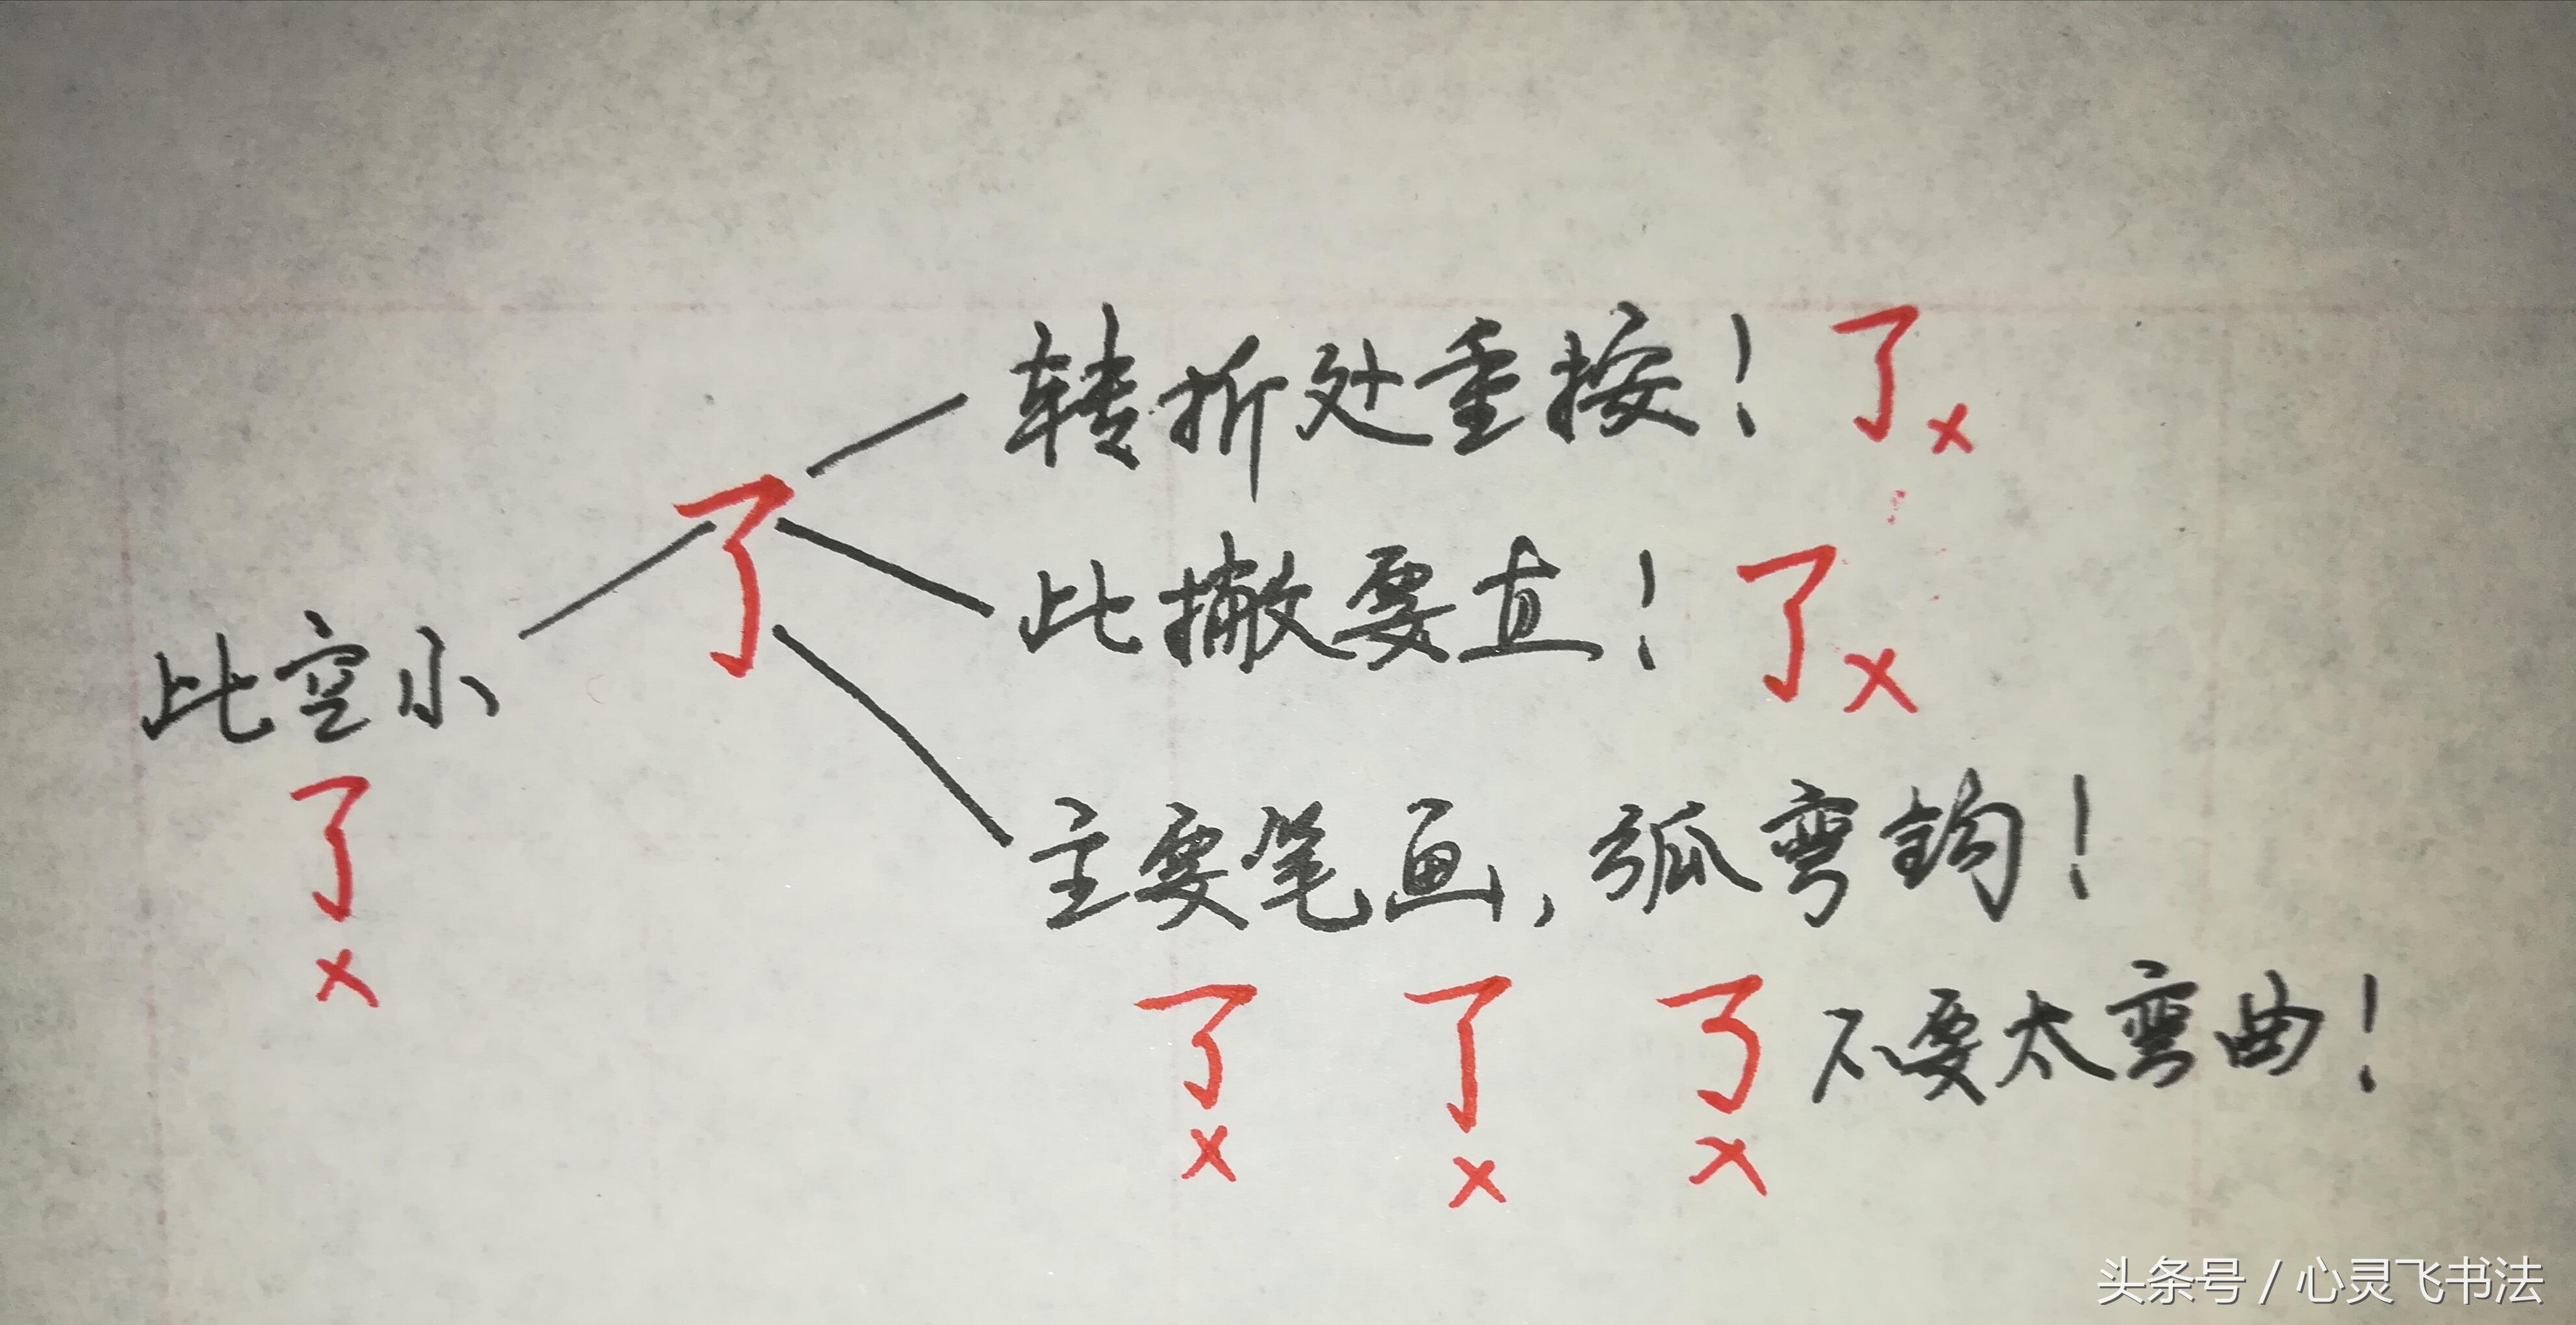 转折处重按！了×
了
此撇要直！了×
此空小
了
×
主要笔画，弧弯钩！
了 了 了 不要太弯曲！
× × ×
头条号 / 心灵飞书法